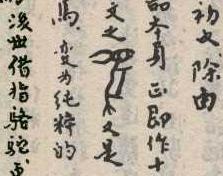 初文除由
品本身正即作十
文之又是
馬變为純粹的
後世借指駱駝或